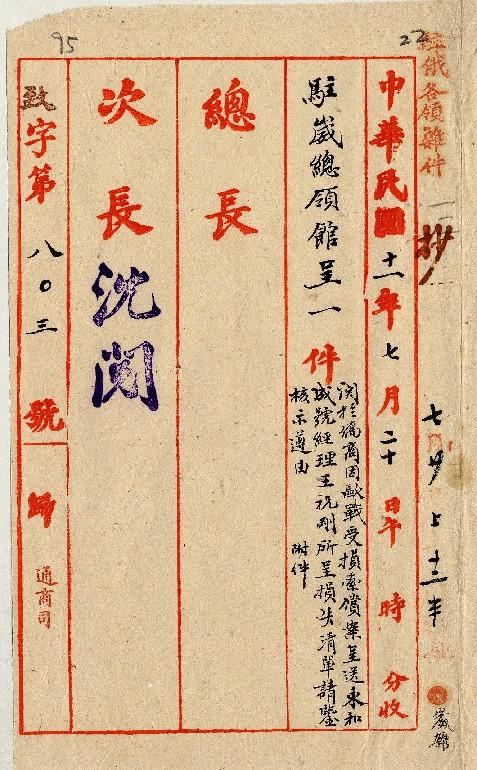 22
95
駐俄各領雜件
抄
七 廿 上 十二 半
歲雜
中華民國十一年七月二十日午 時 分收
駐崴總領館呈一件
關於僑商因歐戰受損索償案呈送東和
成號經理王祝剛所呈損失清單請鑒
核示遵由 附件
總長
次長 沈閱
政字第八〇三號 歸 通商司